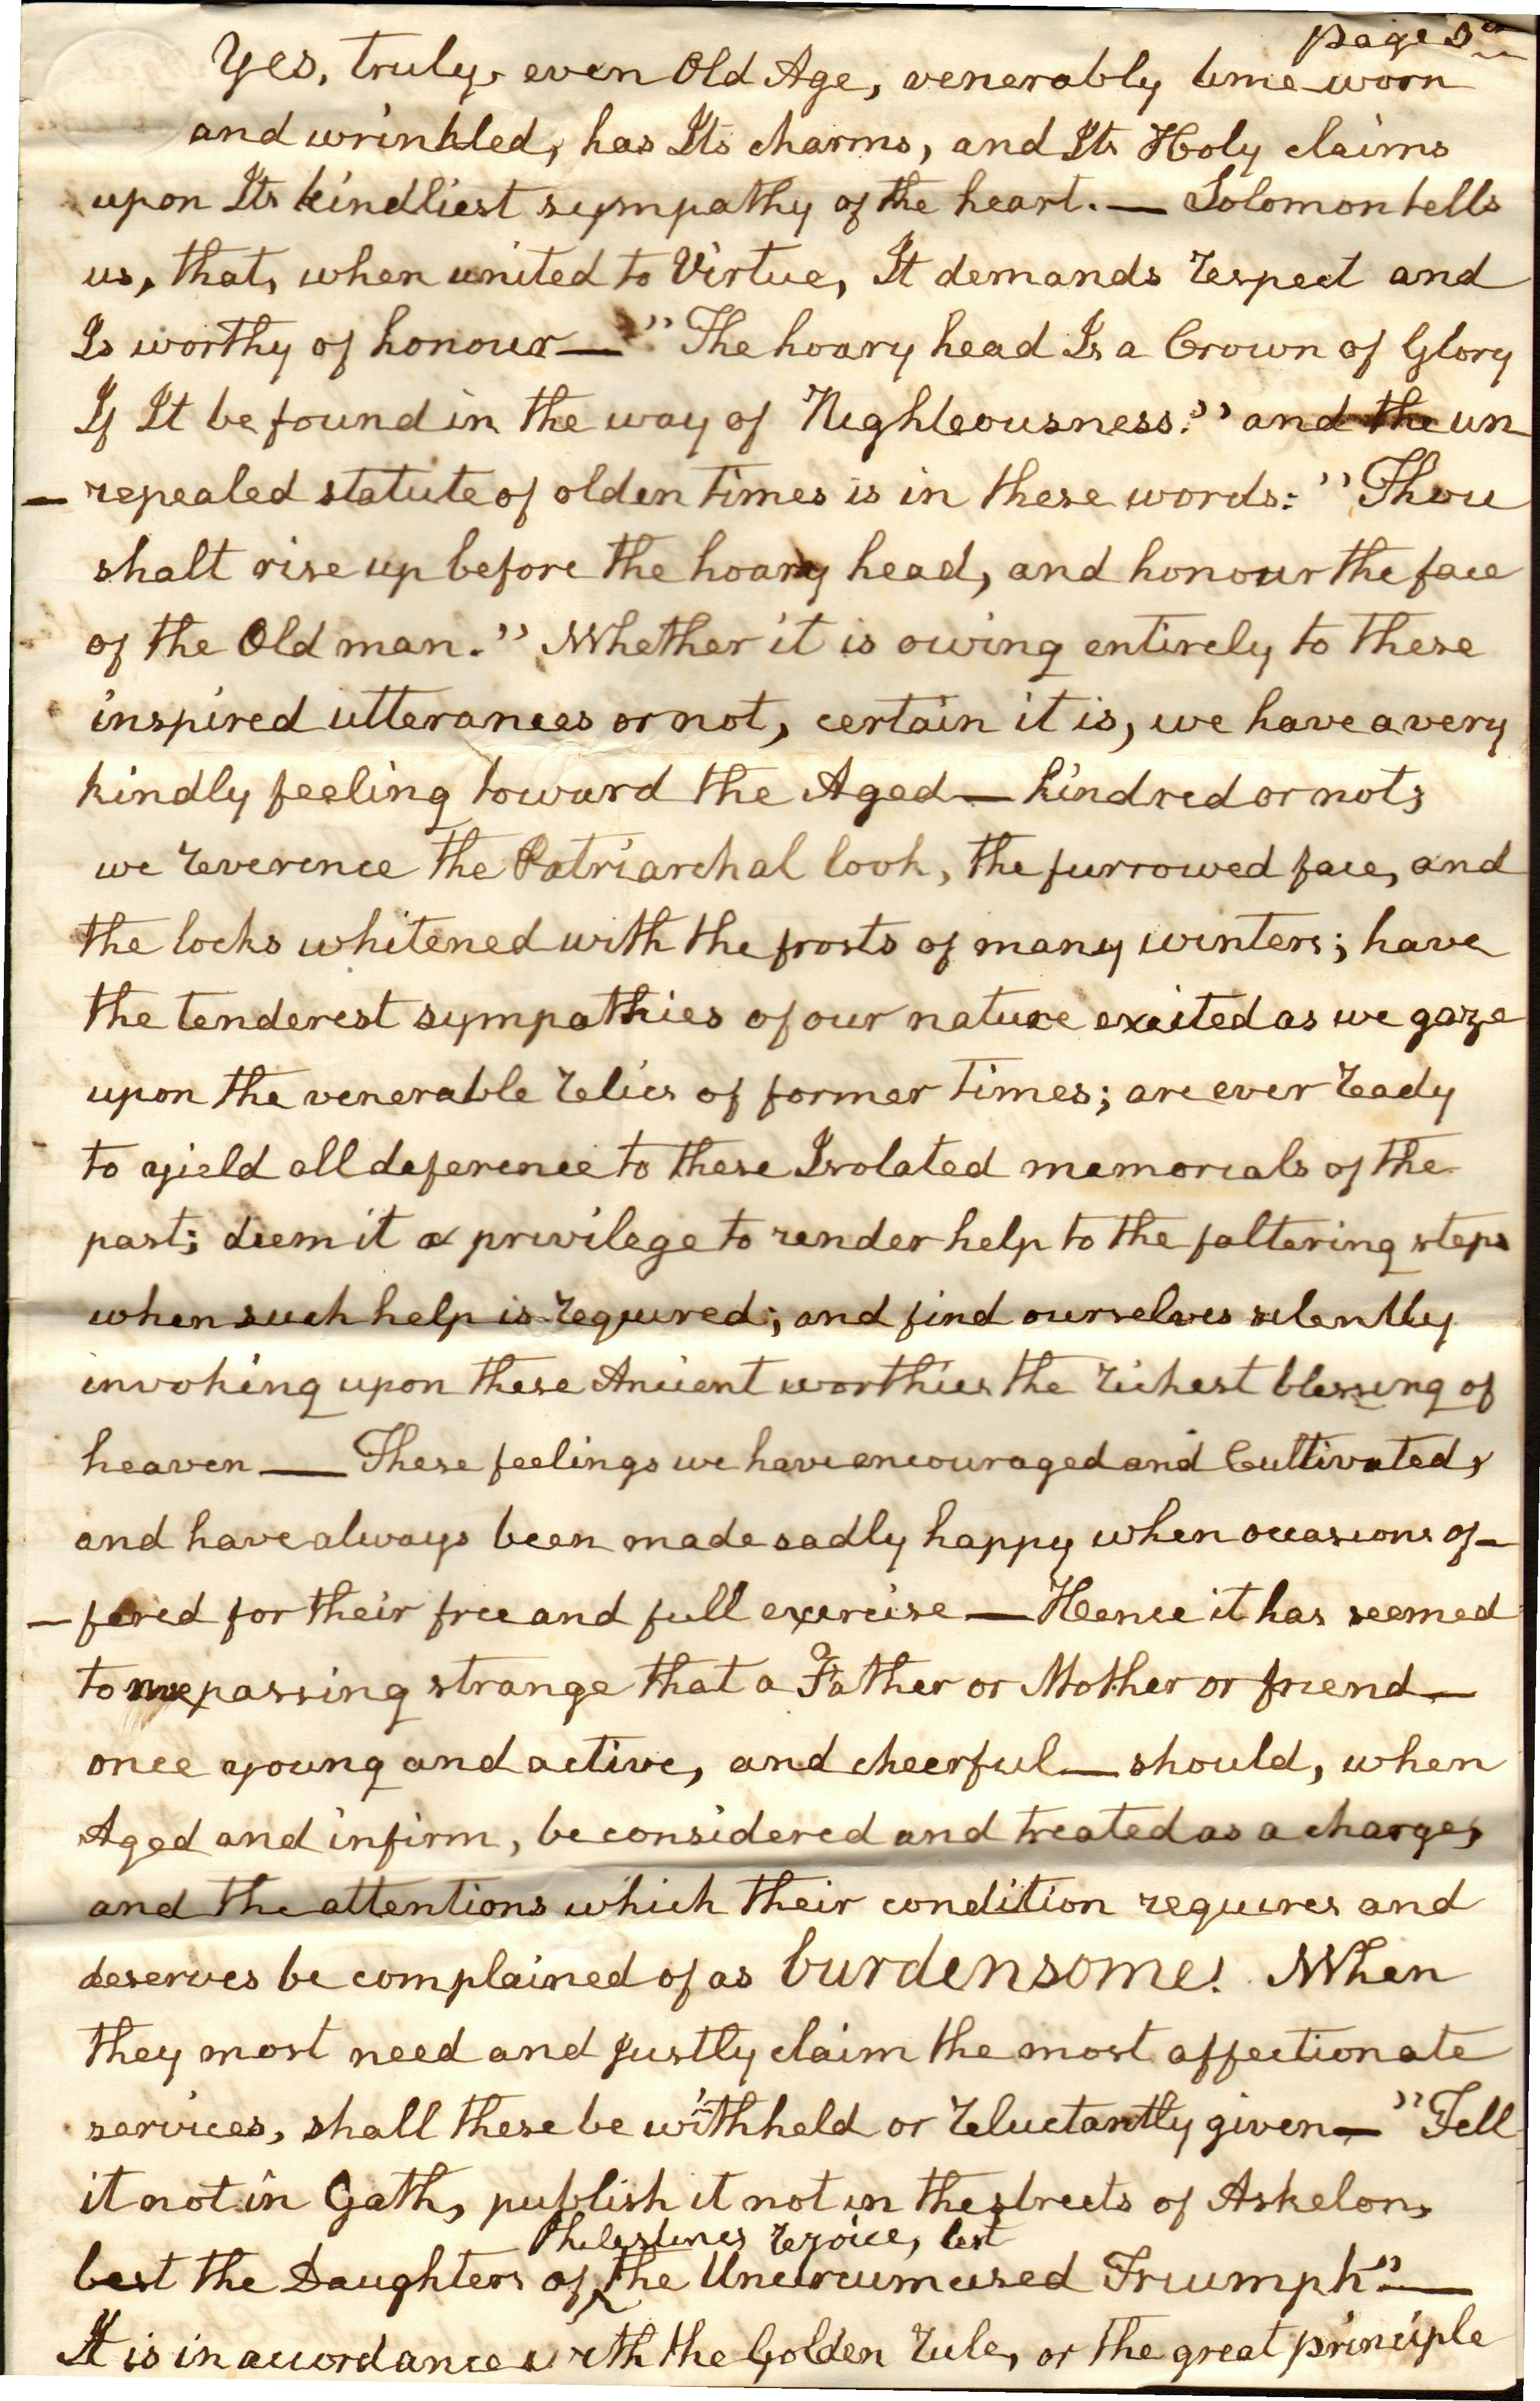 page 3rd
Yes, truly, even Old Age, venerably time-worn
and wrinkled, has Its charms, and Its Holy claims
upon Its kindliest sympathy of the heart. — Solomon tells
us, that, when united to Virtue, It demands respect and
Is worthy of honour — "The hoary head Is a Crown of Glory
If It be found in the way of Righteousness." and the un
- repealed statute of olden times is in these words: "Thou
shalt rise up before the hoary head, and honour the face
of the Old man." Whether it is owing entirely to these
inspired utterances or not, certain it is, we have a very
kindly feeling toward the Aged — kindred or not,
we reverence the Patriarchal look, the furrowed face, and
the locks whitened with the frosts of many winters; have
the tenderest sympathies of our nature excited as we gaze
upon the venerable relics of former times; are ever ready
to yield all deference to these Isolated memorials of the
past; deem it a privilege to render help to the faltering steps
when such help is required; and find ourselves silently
invoking upon these Ancient worthies the richest blessing of
heaven — These feelings we have encouraged and Cultivated,
and have always been made sadly happy when occasions of-
- fered for their free and full exercise — Hence it has seemed
to me passing strange that a Father or Mother or friend —
once young and active, and cheerful — should, when
Aged and infirm, be considered and treated as a charge,
and the attentions which their condition requires and
deserves be complained of as burdensome! When
they most need and justly claim the most affectionate
services, shall these be withheld or reluctantly given — "Tell
it not in Gath, publish it not in the streets of Askelon,
Philestines rejoice, lest
lest the Daughters of the Uncircumcised Triumph" —
It is in accordance with the Golden rule, or the great principle